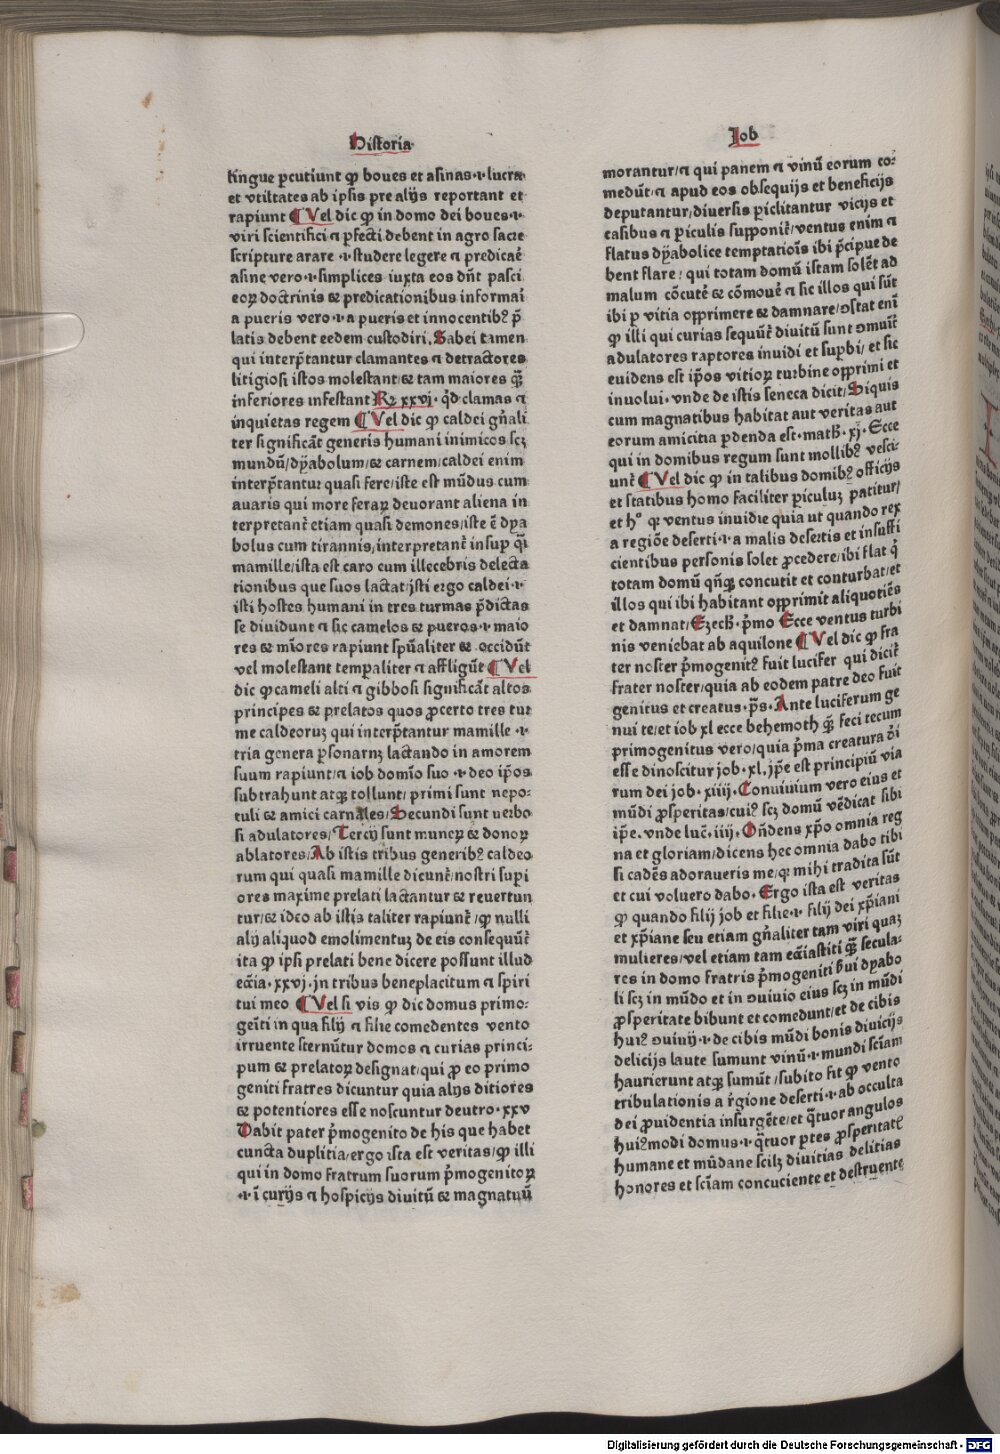 Historia
lingue ꝑcutiunt ꝙ boues et asinas ·i· lucra
et vtilitates ab ipsis pre alijs reportant et
rapiunt ¶ Vel dic ꝙ in domo dei boues ·i·
viri scientifici ⁊ ꝑfecti debent in agro sacre
scripture arare ·i· studere legere ⁊ predicar̄
asine vero ·i· simplices iuxta eos dn̄t pasci
eoꝝ doctrinis & predicationibus informari
a pueris vero ·i· a pueris et innocentibꝰ p̄
latis debent eedem custodiri. Sabei tamen
qui interp̄tantur clamantes ⁊ detractores
litigiosi istos molestant/& tam maiores q̄ꝫ
inferiores infestant Rꝫ xxvj · q̄d clamas ⁊
inquietas regem ¶ Vel dic ꝙ caldei gn̄ali
ter significāt generis humani inimicos scꝫ
mundū/dyabolum/& carnem/caldei enim
interp̄tantur quasi fere/iste est mūdus cum
auaris qui more feraꝝ deuorant aliena in
terpretant̄ etiam quasi demones/iste ē dya
bolus cum tirannis/interpretant̄ insuꝑ q̄i
mamille/ista est caro cum illecebris delecta
tionibus que suos lactat/isti ergo caldei ·i·
isti hostes humani in tres turmas p̄dictas
se diuidunt ⁊ sic camelos & pueros ·i· maio
res & mīores rapiunt spūaliter & occidūt
vel molestant temꝑaliter ⁊ affligūt ¶ Vel
dic ꝙ cameli alti ⁊ gibbosi significāt altos
principes & prelatos quos ꝓcerto tres tur
me caldeoruꝫ qui interp̄tantur mamille ·i·
tria genera ꝑsonaruꝫ lactando in amorem
suum rapiunt/⁊ iob domīo suo ·i· deo ip̄os
subtrahunt atqꝫ tollunt/primi sunt nepo⸗
tuli & amici carnales/Secundi sunt uerbo
si adulatores/Tercij sunt muneꝝ & donoꝝ
ablatores/Ab istis tribus generibꝰ caldeo
rum qui quasi mamille dicunt̄/nostri suꝑi
ores maxime prelati lactantur & reuertun
tur/& ideo ab istis taliter rapiunt̄/ꝙ nulli
alij aliquod emolimentuꝫ de eis consequūt̄
ita ꝙ ipsi prelati bene dicere possunt illud
ecc̄ia · xxvj · jn tribus beneplacitum ⁊ spiri
tui meo ¶ Vel si vis ꝙ dic domus primo⸗
gēiti in qua filij ⁊ filie comedentes vento
irruente sternūtur domos ⁊ curias princi⸗
pum & prelatoꝝ designat/qui ꝓ eo primo
geniti fratres dicuntur quia alijs ditiores
& potentiores esse noscuntur deutro · xxv
Dabit pater p̄mogenito de his que habet
cuncta duplitia/ergo ista est veritas/ꝙ illi
qui in domo fratrum suorum p̄mogenitoꝝ
·i· ī curijs ⁊ hospicijs diuitū & magnatuū
Iob
morantur/⁊ qui panem ⁊ vinū eorum co⸗
medūt/⁊ apud eos obsequijs et beneficijs
deputantur/diuersis ꝑiclitantur vicijs et
casibus ⁊ ꝑiculis supponūt̄/ventus enim ⁊
flatus dyabolice temptatiōis ibi p̄cipue de
bent flare/ qui totam domū istam solēt ad
malum cōcutē & cōmouē ⁊ sic illos qui sūt
ibi ꝑ vitia opprimere & damnare/ꝯstat enī
ꝙ illi qui curias sequūt̄ diuitū sunt ꝯmuīt̄
adulatores raptores inuidi et suꝑbi/ et sic
euidens est ip̄os vitioꝝ turbine opprimi et
inuolui · vnde de istis seneca dicit/Siquis
cum magnatibus habitat aut veritas aut
eorum amicitia ꝑdenda est · math̄ · xj · Ecce
qui in domibus regum sunt mollibꝰ vesci⸗
unt̄ ¶ Vel dic ꝙ in talibus domibꝰ officijs
et statibus homo faciliter ꝑiculuꝫ patitur/
et hᵒ qꝛ ventus inuidie quia ut quando rex
a regiōe deserti ·i· a malis desertis et insuffi
cientibus personis solet ꝓcedere/ibi flat q̄
totam domū qn̄qꝫ concutit et conturbat/et
illos qui ibi habitant opprimit aliquotiēs
et damnat/Ezech̄ · p̄mo Ecce ventus turbi
nis veniebat ab aquilone ¶ Vel dic ꝙ fra
ter noster p̄mogenitꝰ fuit lucifer qui dicit̄
frater noster/quia ab eodem patre deo fuit
genitus et creatus · p̄s · Ante luciferum ge
nui te/et iob xl ecce behemoth q̄ꝫ feci tecum
primogenitus vero/quia p̄ma creatura dī
esse dinoscitur job · xl. jp̄e est principiū via
rum dei job · xiiij · Conuiuium vero eius et
mūdi ꝓsperitas/cuiꝰ scꝫ domū vēdicat sibi
ip̄e · vnde luc̄ · iiij · On̄dens xp̄o omnia reg
na et gloriam/dicens hec omnia dabo tibi
si cadēs adoraueris me/qꝛ mihi tradita sūt
et cui voluero dabo · Ergo ista est veritas
ꝙ quando filij job et filie ·i· filij dei xp̄iani
et xp̄iane seu etiam gn̄aliter tam viri quaꝫ
mulieres/vel etiam tam ecc̄iastiti q̄ꝫ secula⸗
res in domo fratris p̄mogeniti sui dyabo
li scꝫ in mūdo et in ꝯuiuio eius scꝫ in mūdi
ꝓsperitate bibunt et comedunt/et de cibis
huiꝰ ꝯuiuij ·i· de cibis mūdi bonis diuicijs
delicijs laute sumunt vinū ·i· mundi sc̄iam
haurierunt atqꝫ sumūt /subito fit ꝙ vento
tribulationis a r̄gione deserti ·i· ab occulta
dei ꝓuidentia insurgēte/et q̄tuor angulos
huiꝰmodi domus ·i· q̄tuor ꝑtes ꝓsperitatē
humane et mūdane scilꝫ diuitias delitias
honores et sc̄iam concuciente et destruente
Digitalisierung gefördert durch die Deutsche Forschungsgemeinschaft - DFG